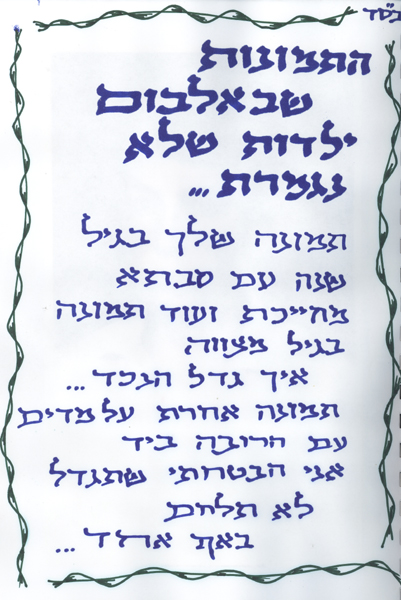 בס"ד
התמונות
שבאלבום
ילדות שלא
נגמרת...
תמונה שלך בגיל
שנה עם סבתא
מחייכת ועוד תמונה
בגיל מצווה
איך גדל הנכד...
תמונה אחרת על מדים
עם חרובה ביד
אני הבטחתי שתגדל
לא תלחם
באף אחד...